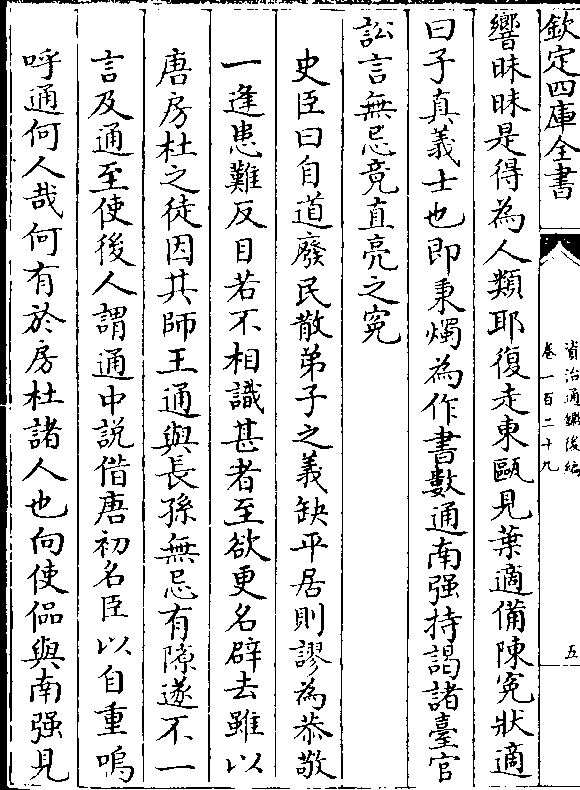 欽定四庫全書
資治通鑑後編
卷一百二十九
五
響昧昧是得為人類耶復走東甌見葉適備陳冤狀適
曰子真義士也即秉燭為作書數通南强持謁諸臺官
訟言無忌竟直亮之寃
史臣曰自道廢民散弟子之義缺平居則謬為恭敬
一逢患難反目若不相識甚者至欲更名辟去雖以
唐房杜之徒因其師王通與長孫無忌有隙遂不一
言及通至使後人謂通中説偕唐初名臣以自重嗚
呼通何人哉何有於房杜諸人也向使侣與南强見